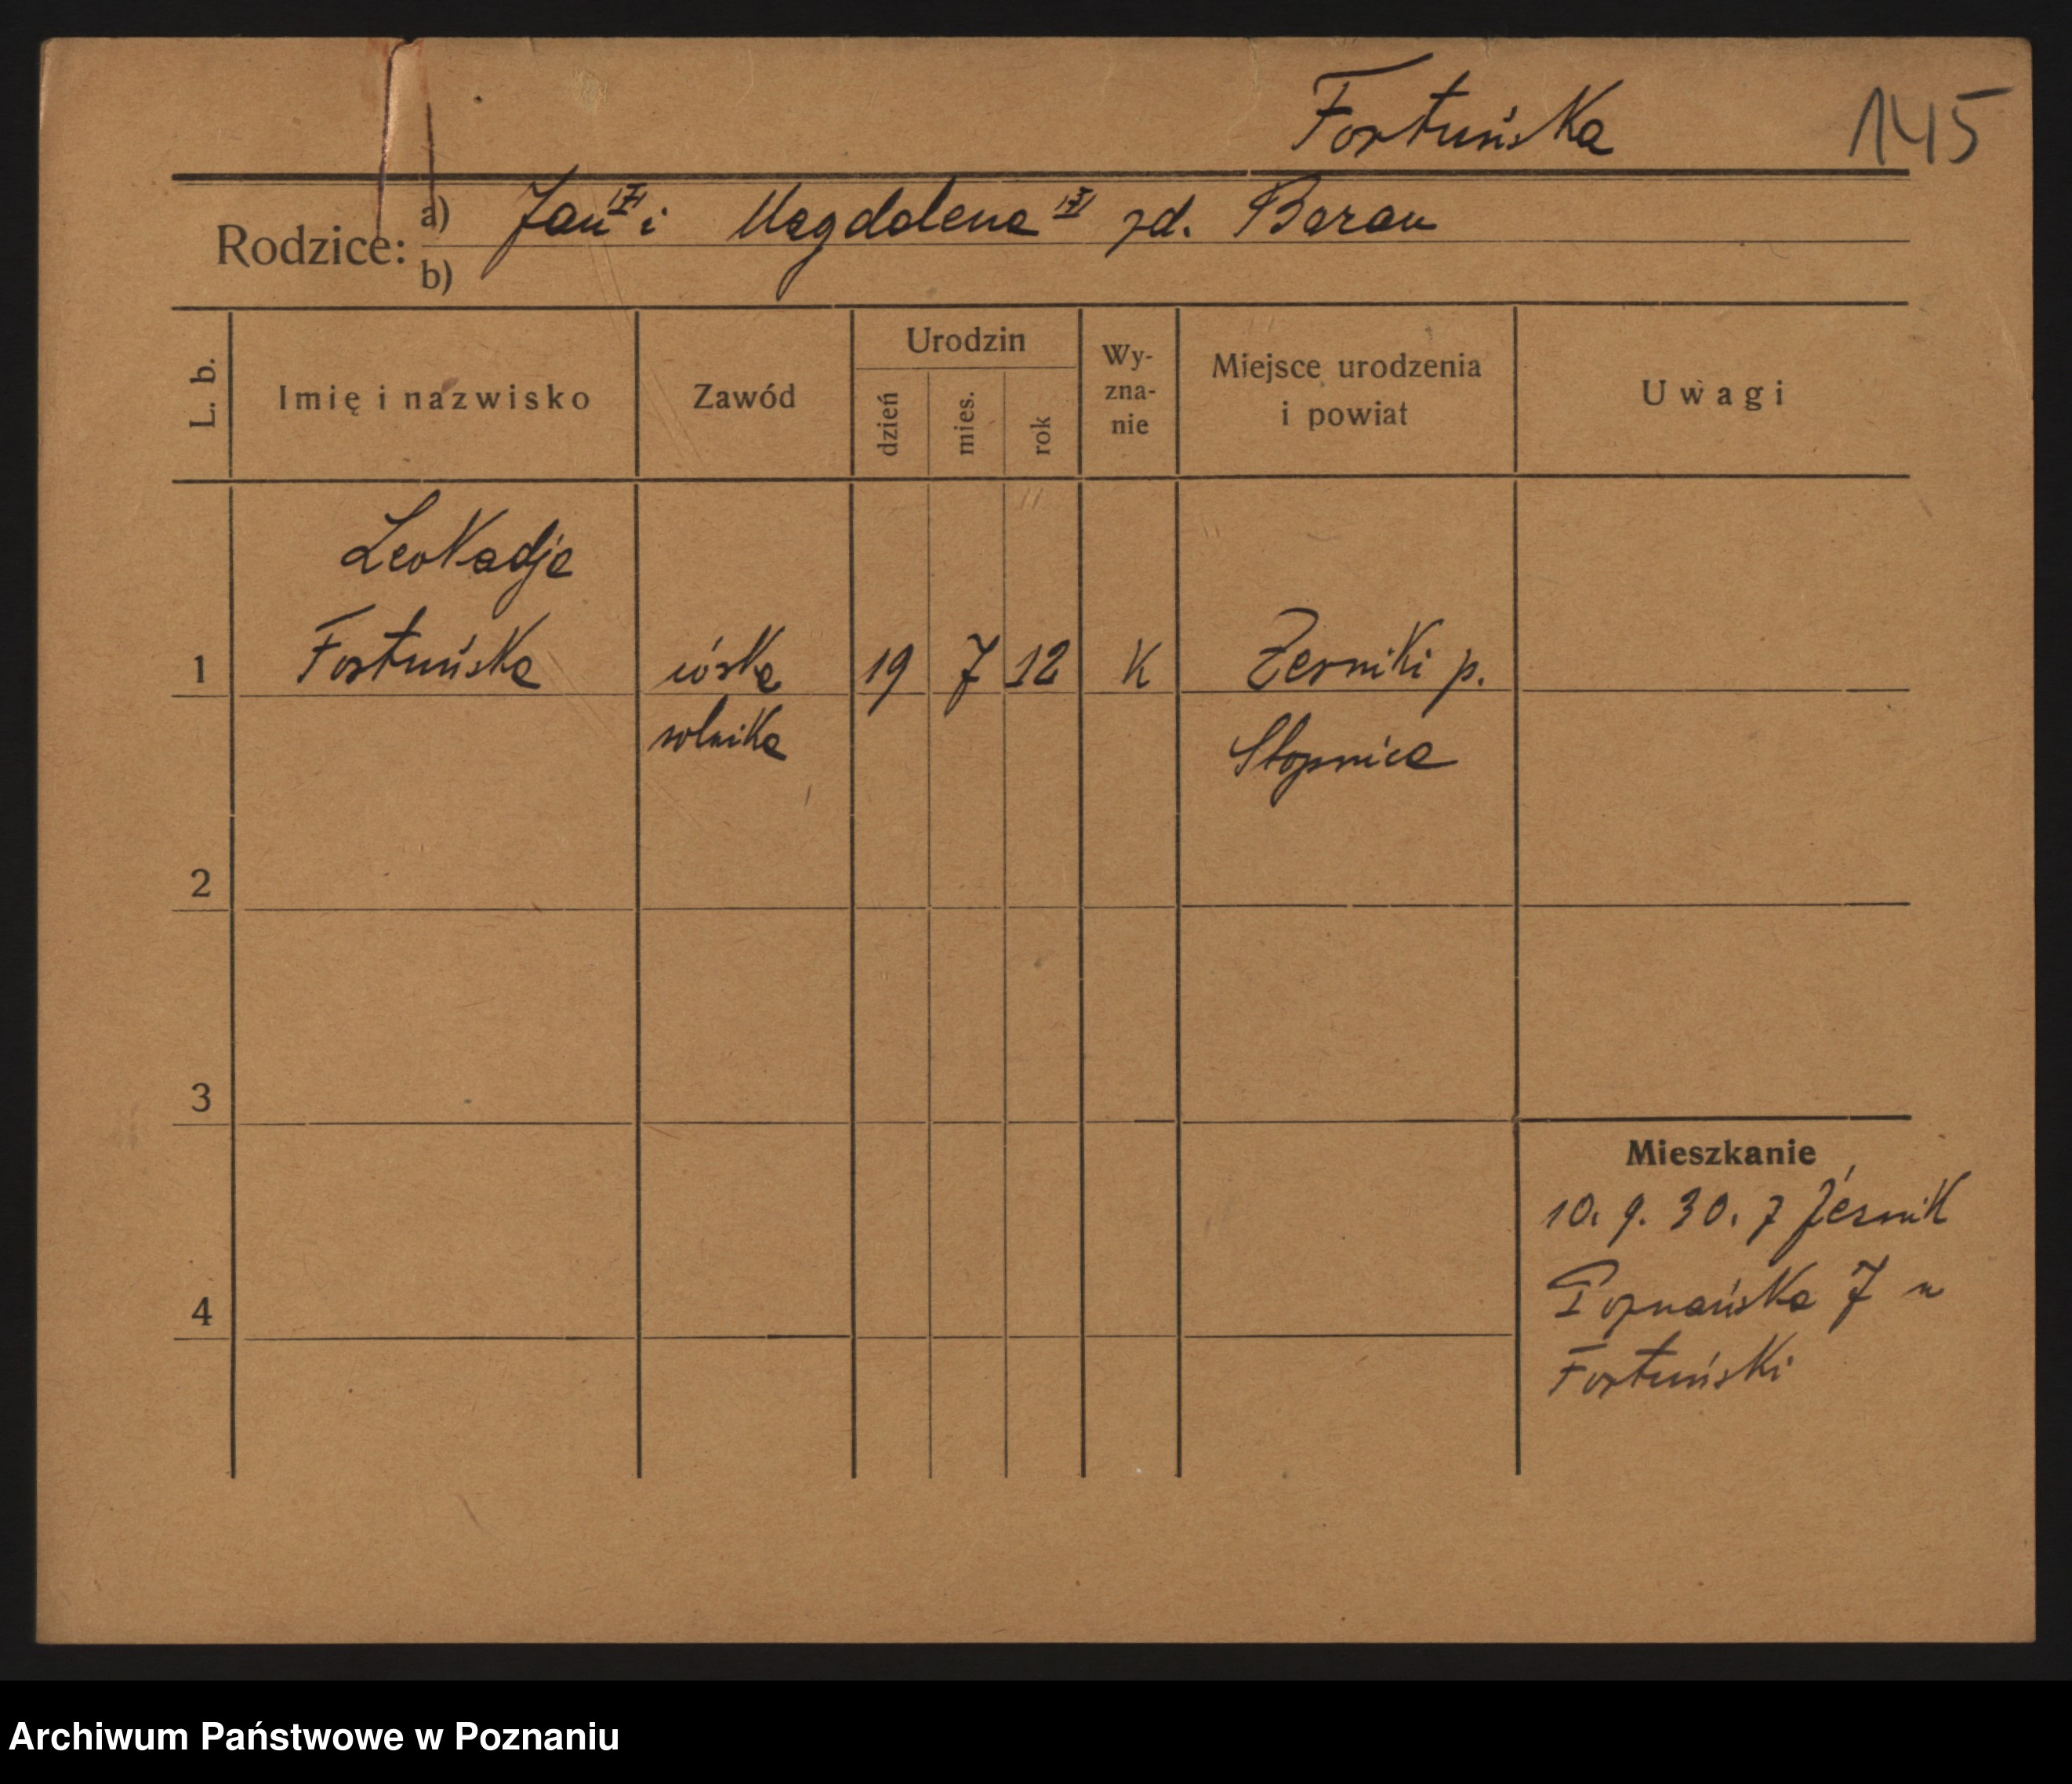 Fortuńska 145
Rodzice:
a) Jan i Magdalena zd. Baran
b)
L. b. Imię i nazwisko Zawód Urodzin dzień mies. rok Wy-zna-nie Miejsce urodzenia i powiat Uwagi
Leokadja
1 Fortuńska córka 19 7 12 K Żerniki p.
rolnika Stopnica
2
3
Mieszkanie
10. 9. 30. z Żernik
Poznańska 7 u
4
Fortuński
Archiwum Państwowe w Poznaniu